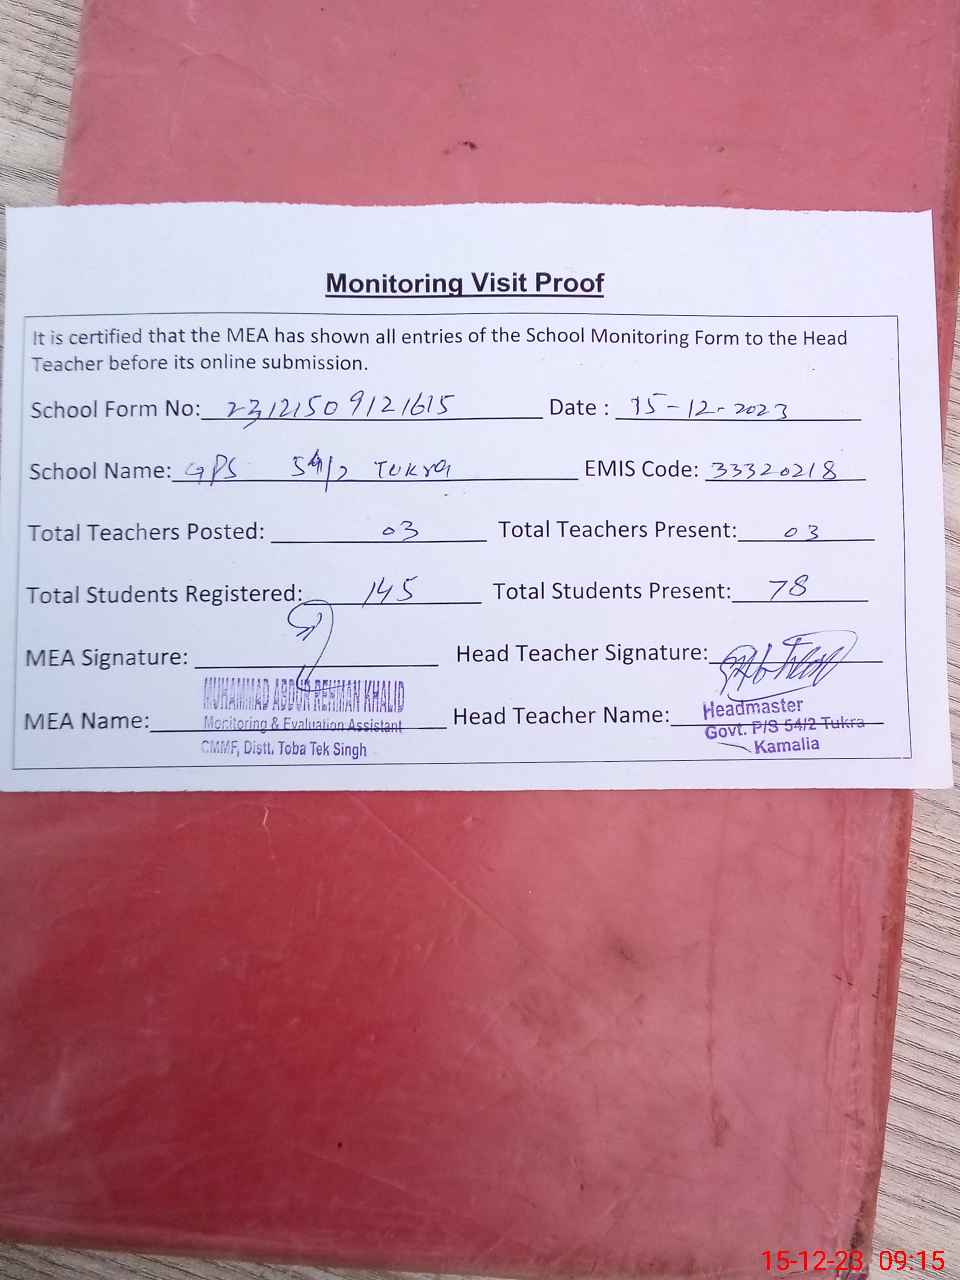 Monitoring Visit Proof
It is certified that the MEA has shown all entries of the School Monitoring Form to the Head
Teacher before its online submission.
School Form No: 23121509121615 Date : 15-12-2023
School Name: GPS 54/2 Tukra EMIS Code: 33320218
Total Teachers Posted: 03 Total Teachers Present: 03
Total Students Registered: 145 Total Students Present: 78
MEA Signature: Head Teacher Signature:
MUHAMMAD ABDUR REHMAN KHALID
MEA Name: Monitoring & Evaluation Assistant
CMMF, Distt. Toba Tek Singh
Head Teacher Name: Headmaster
Govt. P/S 54/2 Tukra
Kamalia
15-12-23 09:15